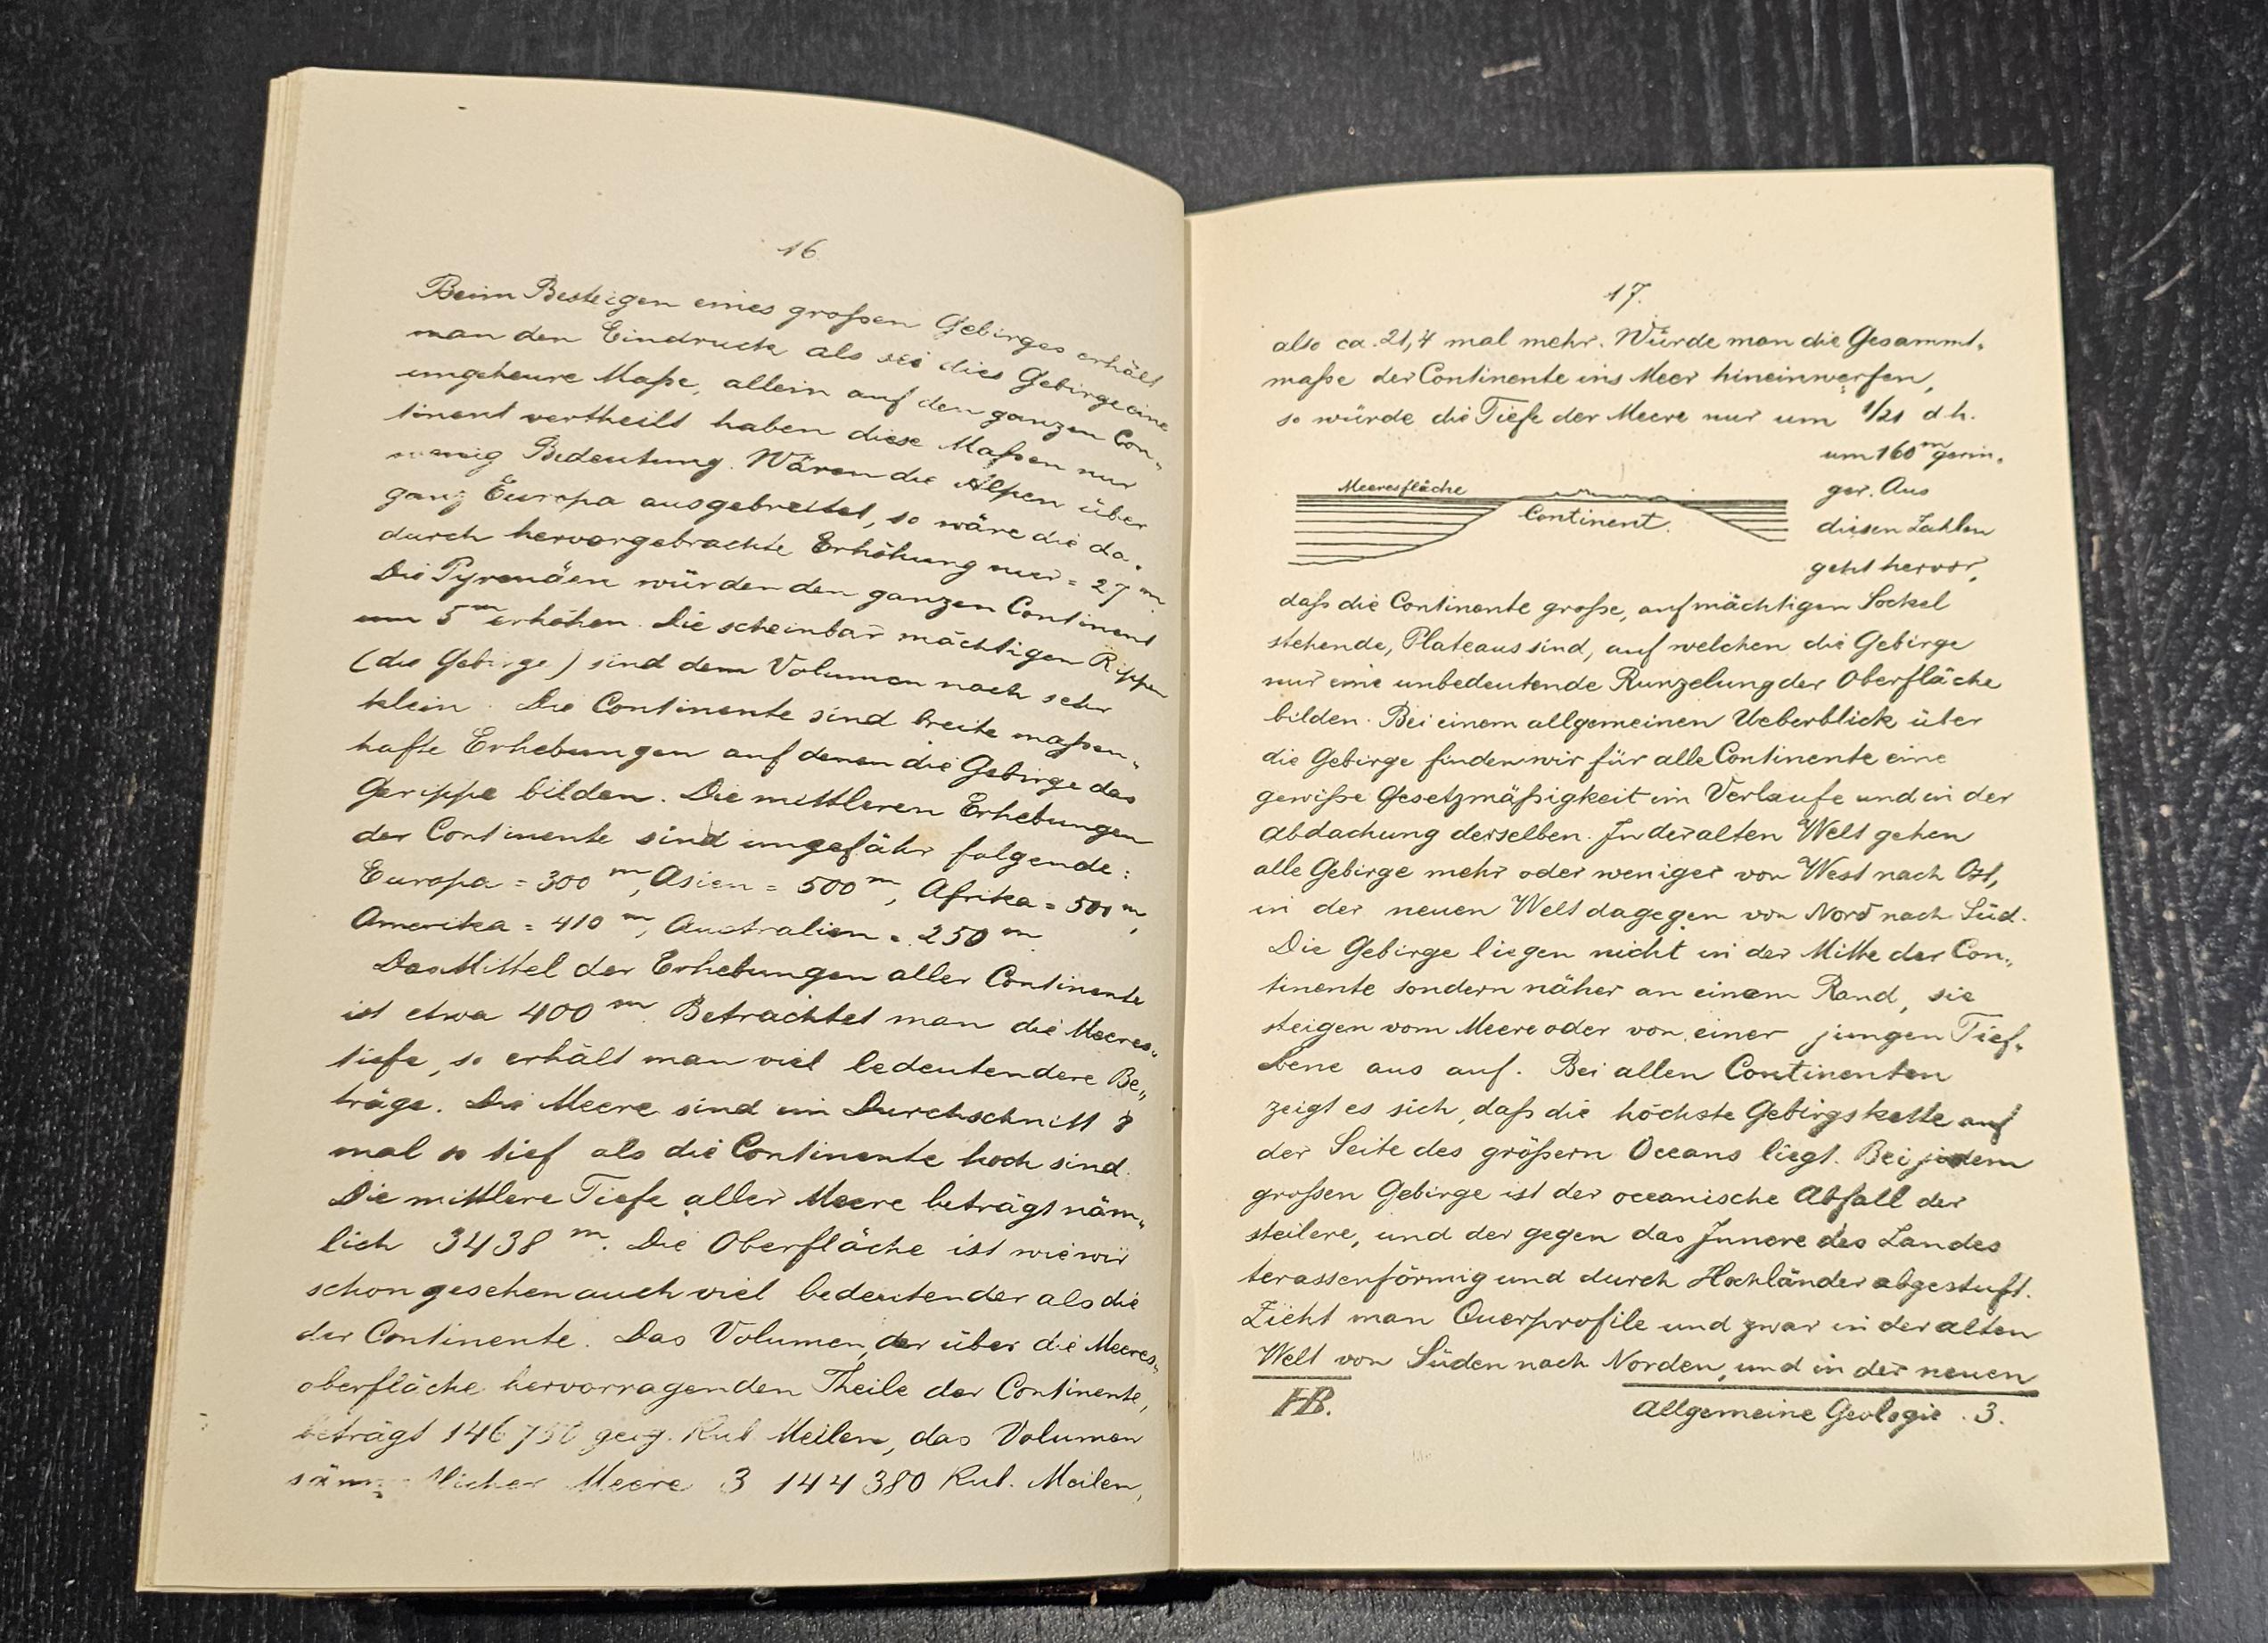 16
Beim Besteigen eines großen Gebirges erhält
man den Eindruck als sei dies Gebirge eine
ungeheure Maße, allein auf den ganzen Con„
tinent vertheilt haben diese Maßen nur
wenig Bedeutung. Wären die Alpen über
ganz Europa ausgebreitet, so wäre die da„
durch hervorgebrachte Erhöhung nur = 27 m.
Die Pyrenäen würden den ganzen Continent
um 5 m erhöhen. Die scheinbar mächtigen Rippen
(die Gebirge) sind dem Volumen nach sehr
klein. Die Continente sind breite maßen„
hafte Erhebungen auf denen die Gebirge das
Gerippe bilden. Die mittleren Erhebungen
der Continente sind ungefähr folgende:
Europa = 300 m, Asien = 500 m, Afrika = 500 m,
Amerika = 410 m, Australien = 250 m.
Das Mittel der Erhebungen aller Continente
ist etwa 400 m. Betrachtet man die Meeres„
tiefe, so erhält man viel bedeutendere Be„
träge. Die Meere sind im Durchschnitt 8
mal so tief als die Continente hoch sind.
Die mittlere Tiefe aller Meere beträgt näm„
lich 3438 m. Die Oberfläche ist wie wir
schon gesehen auch viel bedeutender als die
der Continente. Das Volumen der über die Meeres„
oberfläche hervorragenden Theile der Continente,
beträgt 146 750 geog. Kub Meilen, das Volumen
sämmtlicher Meere 3 144 380 Kub. Meilen,
17.
also ca. 21,4 mal mehr. Würde man die Gesammt„
maße der Continente ins Meer hineinwerfen,
so würde die Tiefe der Meere nur um 1/21 d.h.
um 160 m gerin„
ger. Aus
diesen Zahlen
geht hervor,
Meeresfläche
Continent.
daß die Continente große, auf mächtigen Sockel
stehende, Plateaus sind, auf welchen die Gebirge
nur eine unbedeutende Runzelung der Oberfläche
bilden. Bei einem allgemeinen Ueberblick über
die Gebirge finden wir für alle Continente eine
gewiße Gesetzmäßigkeit im Verlaufe und in der
Abdachung derselben. In der alten Welt gehen
alle Gebirge mehr oder weniger von West nach Ost,
in der neuen Welt dagegen von Nord nach Süd.
Die Gebirge liegen nicht in der Mitte der Con„
tinente sondern näher an einem Rand, sie
steigen vom Meere oder von einer jungen Tief„
ebene aus auf. Bei allen Continenten
zeigt es sich, daß die höchste Gebirgskette auf
der Seite des größern Oceans liegt. Bei jedem
großen Gebirge ist der oceanische Abfall der
steilere, und der gegen das Innere des Landes
terassenförmig und durch Hochländer abgestuft.
Zieht man Querprofile und zwar in der alten
Welt von Süden nach Norden, und in der neuen
HB.
Allgemeine Geologie. 3.